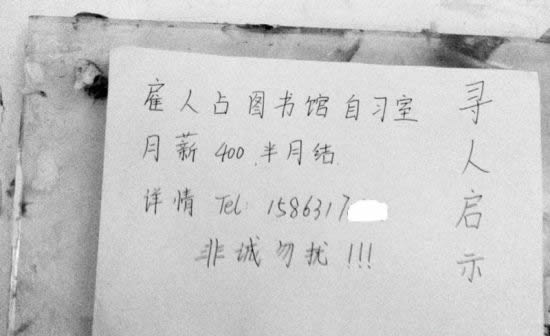 寻人启示
雇人占图书馆自习室
月薪400,半月结.
详情 Tel: 1586317
非诚勿扰!!!